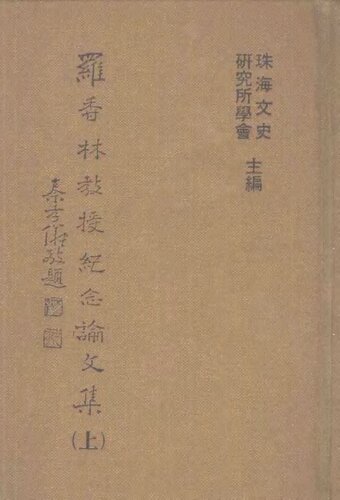 珠海文史
研究所學會
主編
羅香林教授紀念論文集(上)
秦孝儀敬題